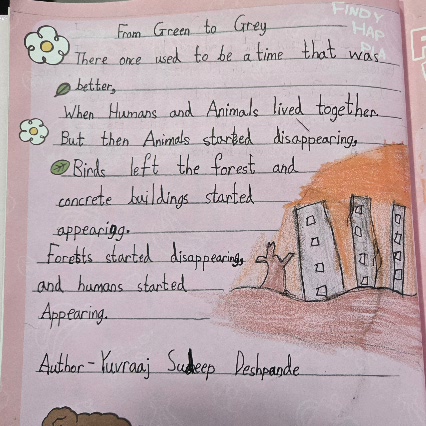 FINDY
HAP
PLA
From Green to Grey
There once used to be a time that was
better,
When Humans and Animals lived together.
But then Animals started disappearing,
Birds left the forest and
concrete buildings started
appearing.
Forests started disappearing,
and humans started
Appearing.
Author - Yuvraaj Sudeep Deshpande